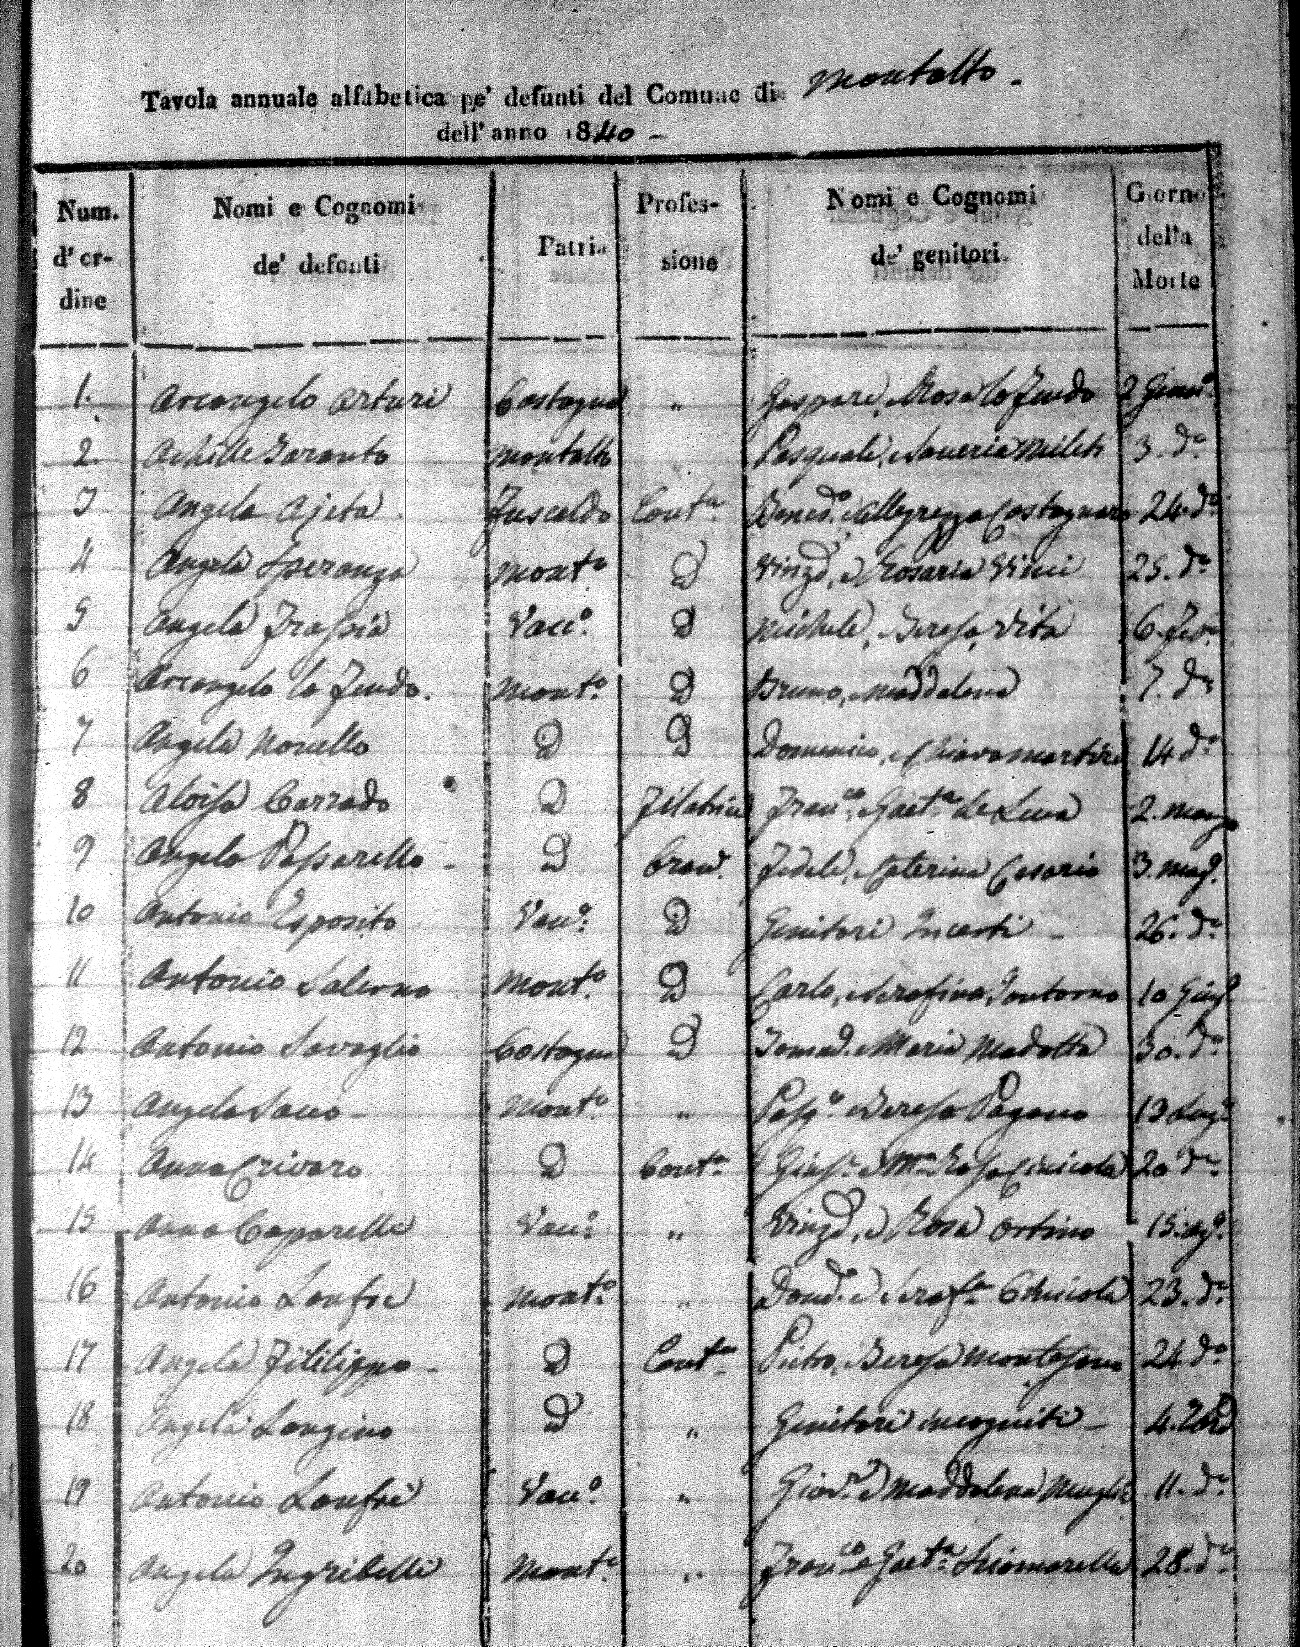 Tavola annuale alfabetica pe' defunti del Comune di Montalto -
dell'anno 1840 -
Num. d'ordine Nomi e Cognomi de' defonti Patria Professione Nomi e Cognomi de' genitori. Giorno della Morte
1. Arcangelo Arturi Castagna " Gaspare, e Rosa lo Feudo 2 Genn.o
2. Achille Taranto Montalto Pasquale, e Saveria Mileti 3. d.o
3 Angela Ajeta Fuscaldo Cont.a Bened.o e Allegrezza Castagnaro 24. d.o
4 Angela Speranza Mont.o D Vinz.o, e Rosaria Vinci 25. d.o
5 Angela Frassia Vacc.o D Michele, e Teresa Vita 6. Feb.o
6 Arcangelo lo Feudo. Mont.o D Bruno, e Maddalena 7. d.o
7 Angela Novello D D Domenico, e Chiara Martire 14 d.o
8 Aloisa Corrado D Filatrice Fran.co, e Gaet.a de Luca 2. Marzo
9 Angelo Passarello - D Fedele, e Caterina Cesario 3. Mag.o
10 Antonio Esposito Vacc.o D Genitori Incerti - 26. d.o
11 Antonio Salerno Mont.o D Carlo, e Serafina 10 Giug.o
12 Antonio Savaglio Castagna D e Maria 30. d.o
13 Angela Sacco - Mont.o " Pasq.e e Teresa Pagano 19 Lug.o
14 Anna Crivaro D Cont.a Gius.e e M.a Rosa 20 d.o
15 Anna Caparelli Vacc.o " Vinz.o, e Rosa Ortino 15. Ag.o
16 Antonio Lanfre Mont.o " e Seraf.a Chiciola 23. d.o
17 Angela Fililippo - D Cont.a Pietro, e Teresa 24 d.o
18 Angela Longino D " Genitori incogniti - 4. 7bre
19 Antonio Lanfre Vacc.o " Giov.i e Maddalena 11. d.o
20 Angela Ingribelli Mont.o " Fran.co e Gaet.a Sciomarella 28. d.o